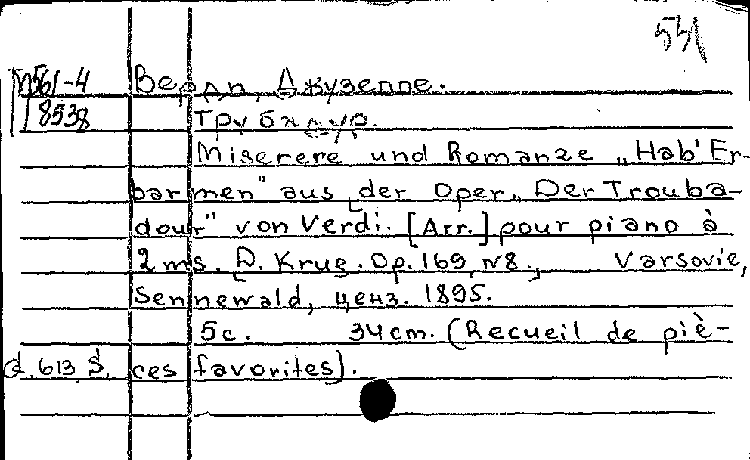 531
М561-4 Верди, Джузеппе.
8538 Трубадур.
Miserere und Romanze „Hab' Er-
barmen" aus der Oper „Der Trouba-
dour" von Verdi. [Arr.] pour piano à
2 ms. D. Krug. Op. 169, N8., Varsovie,
Sennewald, ценз. 1895.
5с. 34cm. (Recueil de piè-
d. 613 S. ces favorites).